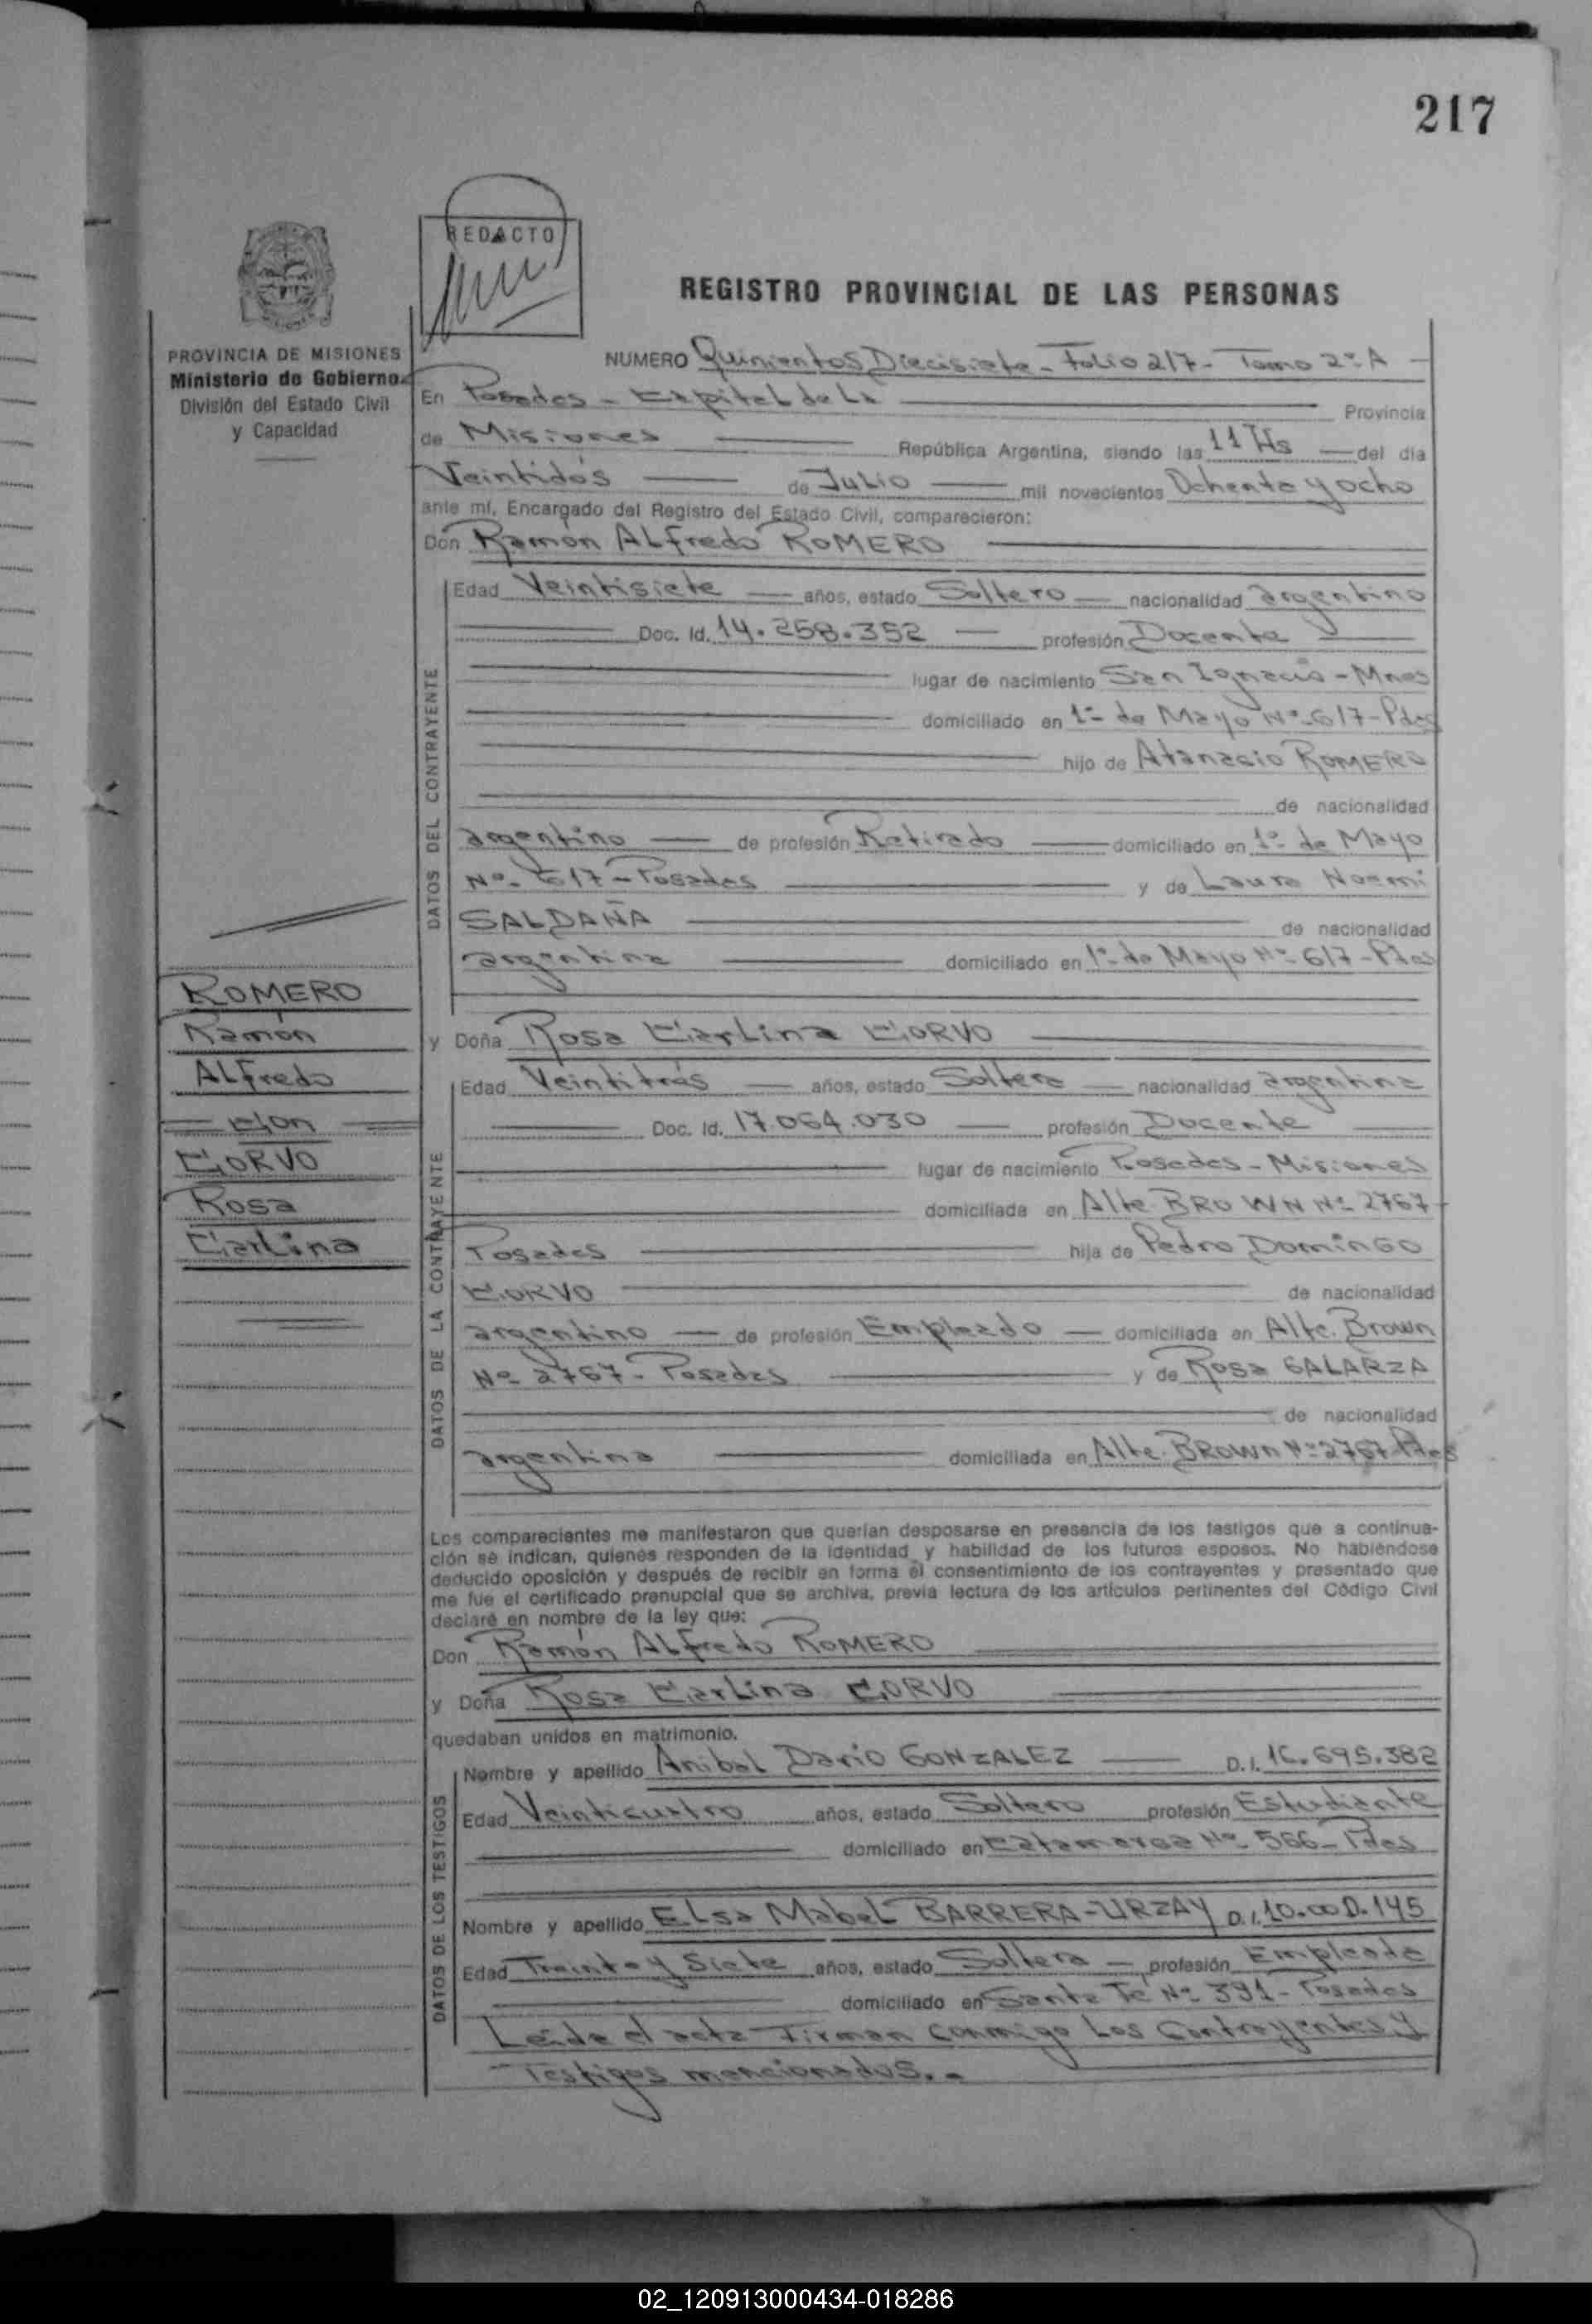 217
REDACTO
REGISTRO PROVINCIAL DE LAS PERSONAS
PROVINCIA DE MISIONES
Ministerio de Gobierno
División del Estado Civil
y Capacidad
NUMERO Quinientos Diecisiete - Folio 217 - Tomo 2º A -
En Posadas - Capital de la Provincia
de Misiones República Argentina, siendo las 11 Hs del día
Veintidós de Julio mil novecientos Ochenta y ocho
ante mí, Encargado del Registro del Estado Civil, comparecieron:
Don Ramón Alfredo ROMERO
DATOS DEL CONTRAYENTE
Edad Veintisiete años, estado Soltero nacionalidad argentino
Doc. Id. 14.258.352 profesión Docente
lugar de nacimiento San Ignacio - Mnes
domiciliado en 1º de Mayo Nº 617 - Pdas
hijo de Atanacio ROMERO
de nacionalidad
argentino de profesión Retirado domiciliado en 1º de Mayo
Nº 617 - Posadas y de Laura Noemi
SALDAÑA de nacionalidad
argentina domiciliado en 1º de Mayo Nº 617 - Pdas
ROMERO
Ramón
Alfredo
con
CORVO
Rosa
Carlina
y Doña Rosa Carlina CORVO
DATOS DE LA CONTRAYENTE
Edad Veintitrés años, estado Soltera nacionalidad argentina
Doc. Id. 17.064.030 profesión Docente
lugar de nacimiento Posadas - Misiones
domiciliada en Alte. BROWN Nº 2767 -
Posadas hija de Pedro DOMINGO
CORVO de nacionalidad
argentino de profesión Empleado domiciliada en Alte. Brown
Nº 2767 - Posadas y de Rosa GALARZA
de nacionalidad
argentina domiciliada en Alte. BROWN Nº 2767 Pdas
Los comparecientes me manifestaron que querían desposarse en presencia de los testigos que a continua-
ción se indican, quienes responden de la identidad y habilidad de los futuros esposos. No habiéndose
deducido oposición y después de recibir en forma el consentimiento de los contrayentes y presentado que
me fue el certificado prenupcial que se archiva, previa lectura de los artículos pertinentes del Código Civil
declaré en nombre de la ley que:
Don Ramón Alfredo ROMERO
y Doña Rosa Carlina CORVO
quedaban unidos en matrimonio.
DATOS DE LOS TESTIGOS
Nombre y apellido Anibal Dario GONZALEZ D.I. 16.695.382
Edad Veinticuatro años, estado Soltero profesión Estudiante
domiciliado en Catamarca Nº 566 - Pdas
Nombre y apellido Elsa Mabel BARRERA-URZAY D.I. 10.000.145
Edad Treinta y Siete años, estado Soltera profesión Empleada
domiciliado en Santa Fé Nº 391 - Posadas
Leida el acta Firman conmigo Los Contrayentes y
Testigos mencionados.-
02_120913000434-018286